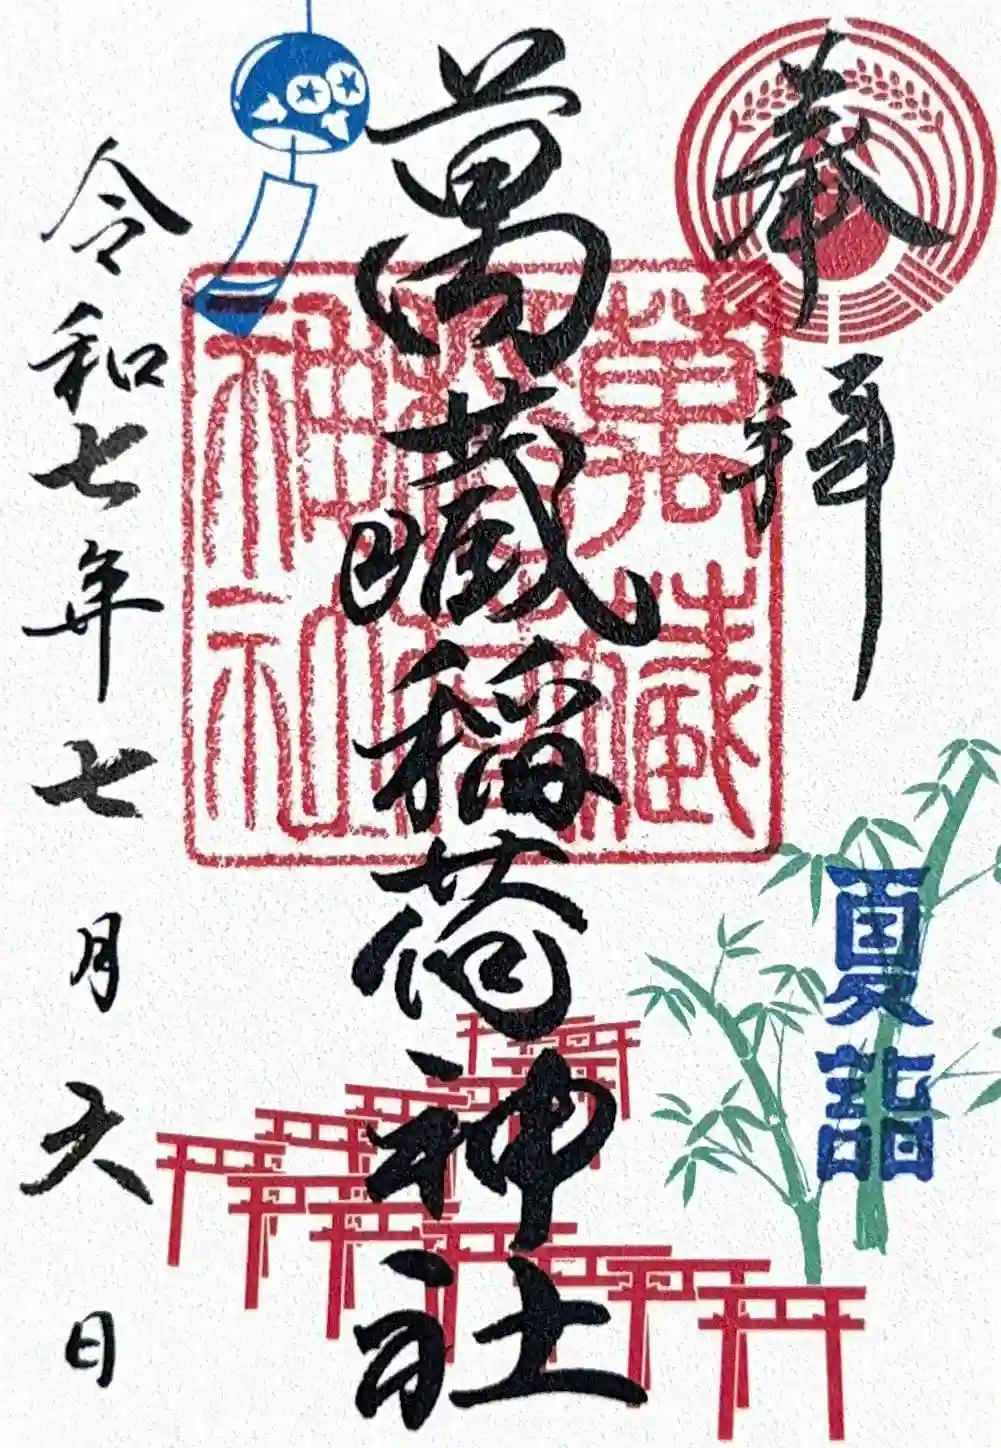 奉拝
萬藏稲荷神社
萬藏
稲荷
神社
夏詣
令和七年七月六日